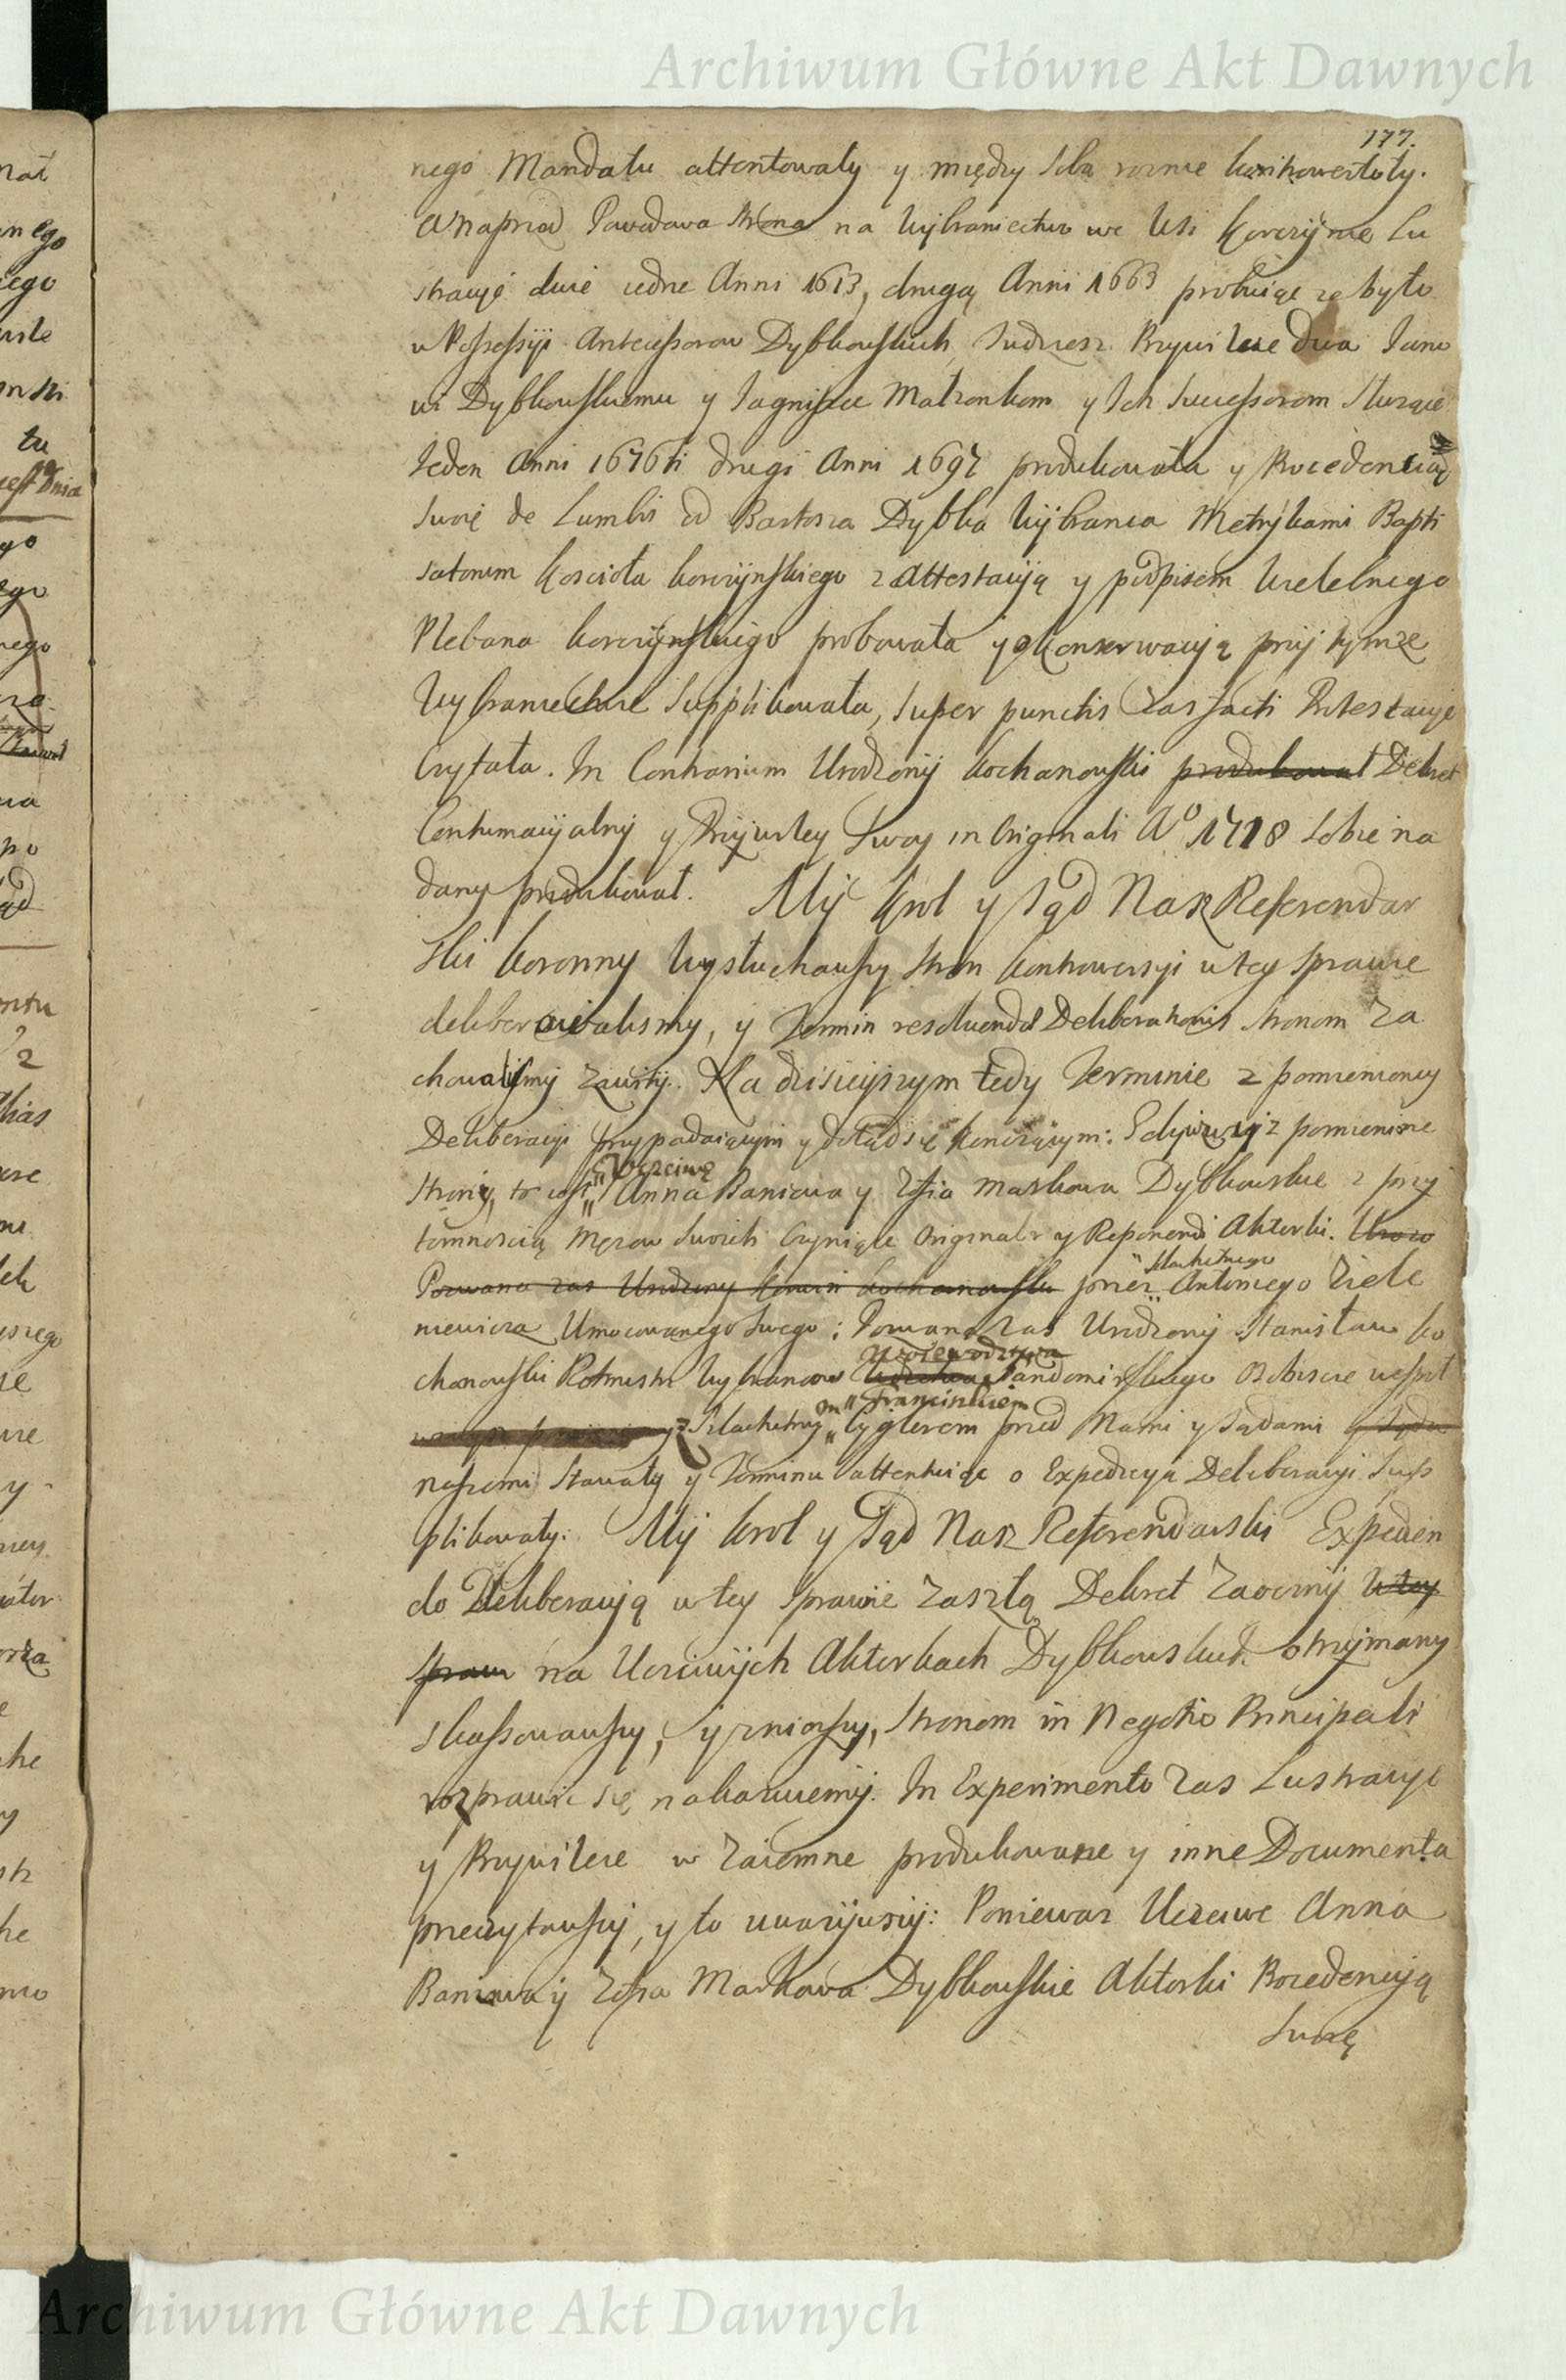 Archiwum Główne Akt Dawnych
177.
nego Mandatu attentowały y między Sobą rożnie kontrowertoły.
A naprzod Powodowa Strona na Wybraniectwo we Wsi Korczynie Lu
stracye dwie iedne Anni 1613, drugą Anni 1663 probuiąc że było
w Possessyi Antecessorow Dybkowskich, Tudziesz Przywileie dwa Jano
wi Dybkowskiemu y Jagnisce Małżonkom y Ich Successorom Służące
Jeden Anni 1676ti drugi Anni 1697 produkowała y Procedencią
Swoię de Lumbis od Bartosza Dybka Wybranca Metrykami Bapti
satorum Kościoła Korczynskiego z Attestacyą y podpisem Wielebnego
Plebana Korczynskiego probowała y o konserwacyą przy tymże
Wybraniectwie Supplikowała, Super punctis zas facti Protestacye
Czytała. In Contrarium Urodzony Kochanowski produkował Dekret
Contumacyalny y Przywiley Swoy in Originali Aº 1718 Sobie na
dany produkował. My Krol y Sąd Nasz Referendar
ski Koronny Wysłuchawszy Stron Kontrowersyi w tey Sprawie
deliberowalismy, y Termin resolvendae Deliberationis Stronom Za
chowalismy Zawity. Na dzisieyszym tedy Terminie z pomienioney
Deliberacyi przypadaiącym y dotąd się kończącym: Gdy wyż pomienione
Uczciwe
Strony, to iest Anna Baniowa y Zofia Markowa Dybkowskie z przy
tomnoscią Mężow Swoich Czyniące Originales y Reponendi Aktorki.
Szlachetnego
Pozwany zas Urodzony Kochanowski przez Antoniego Ziele
niewicza Umocowanego Swego; Pozwany zas Urodzony Stanisław Ko
Woiewodztwa
chanowski Rotmistrz Wybrancow Sandomirskiego Osobiscie wespoł
m Franciszkiem
z Szlachetny Cyglerem przed Nami y Sądami
naszemi Stawały y Terminu attentuiąc o Expedycyą Deliberacyi Sup
plikowały: My Krol y Sąd Nasz Referendarski Expedien
do Deliberacyą w tey Sprawie zaszłą Dekret Zaoczny w tey
spraw na Uczciwych Aktorkach Dybkowskich otrzymany
skassowawszy, y zniozszy, Stronom in Negotio Principali
rozprawic się nakazuiemy. In Experimento zas Lustracye
y Przywileie wzaiemne produkowane y inne Documenta
przeczytawszy, y to uważywszy: Poniewaz Uczciwe Anna
Baniowa y Zofia Markowa Dybkowskie Aktorki Procedencyą
Swoię
Archiwum Główne Akt Dawnych